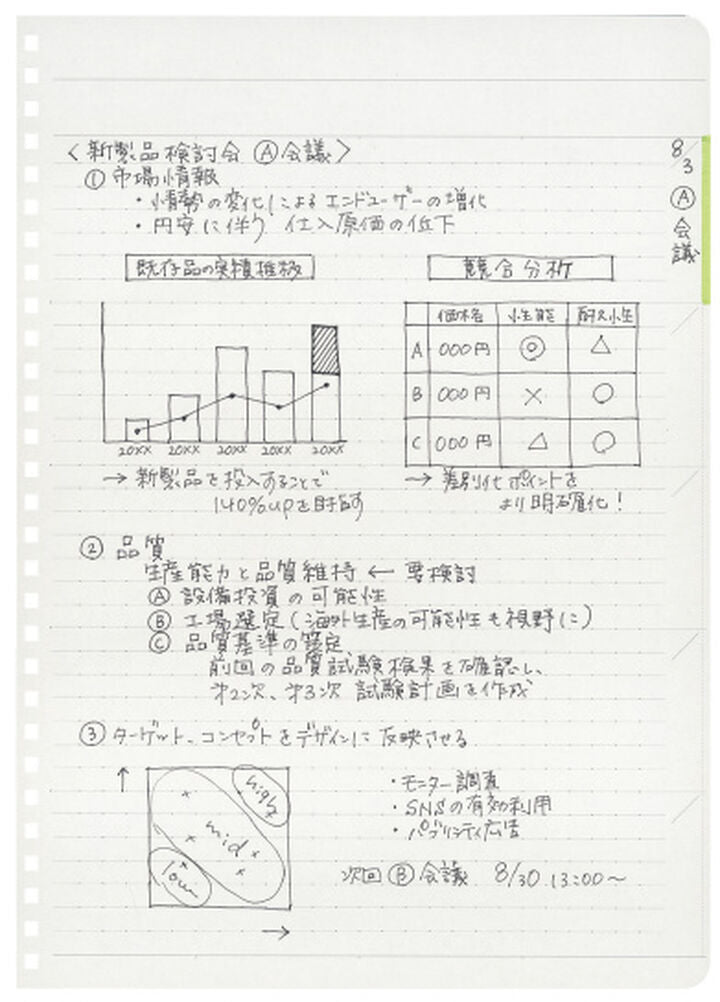 〈新製品検討会 Ⓐ会議〉
8/3 Ⓐ会議
① 市場情報
・情勢の変化によるエンドユーザーの増化
・円安に伴り 仕入原価の低下
既存品の実績推移
20XX 20XX 20XX 20XX 20XX
→ 新製品を投入することで
140%upを目指す
競合分析
価格 性能 耐久性
A 000円 ◎ △
B 000円 × ○
C 000円 △ ○
→ 差別化ポイントを
より明確化!
② 品質
生産能力と品質維持 ← 要検討
Ⓐ 設備投資の可能性
Ⓑ 工場選定(海外生産の可能性も視野に)
Ⓒ 品質基準の策定
前回の品質試験検果を確認し、
第2次、第3次 試験計画を作成
③ ターゲット、コンセプトをデザインに反映させる
↑
high
mid
low
→
・モニター調査
・SNSの有効利用
・パブリシティ広告
次回 Ⓑ会議 8/30 13:00~